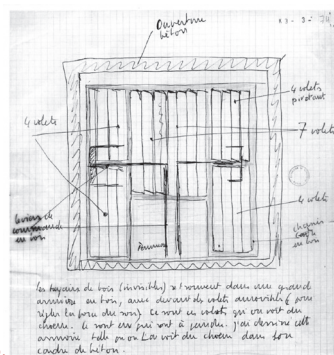 Ouverture
béton
4 volets
pivotant
4 volets
7 volets
leviers de
commande
en bois
4 volets
en bois
Les tuyaux de bois (invisibles) se trouvent dans une grand
armoire en bois, avec devant des volets amovibles (pour
régler la force du son). Ce sont ces volets, qu'on voit du
choeur. Ce sont eux qui sont à peindre. J'ai dessiné cette
armoire telle qu'on la voit du choeur dans son
cadre de béton.